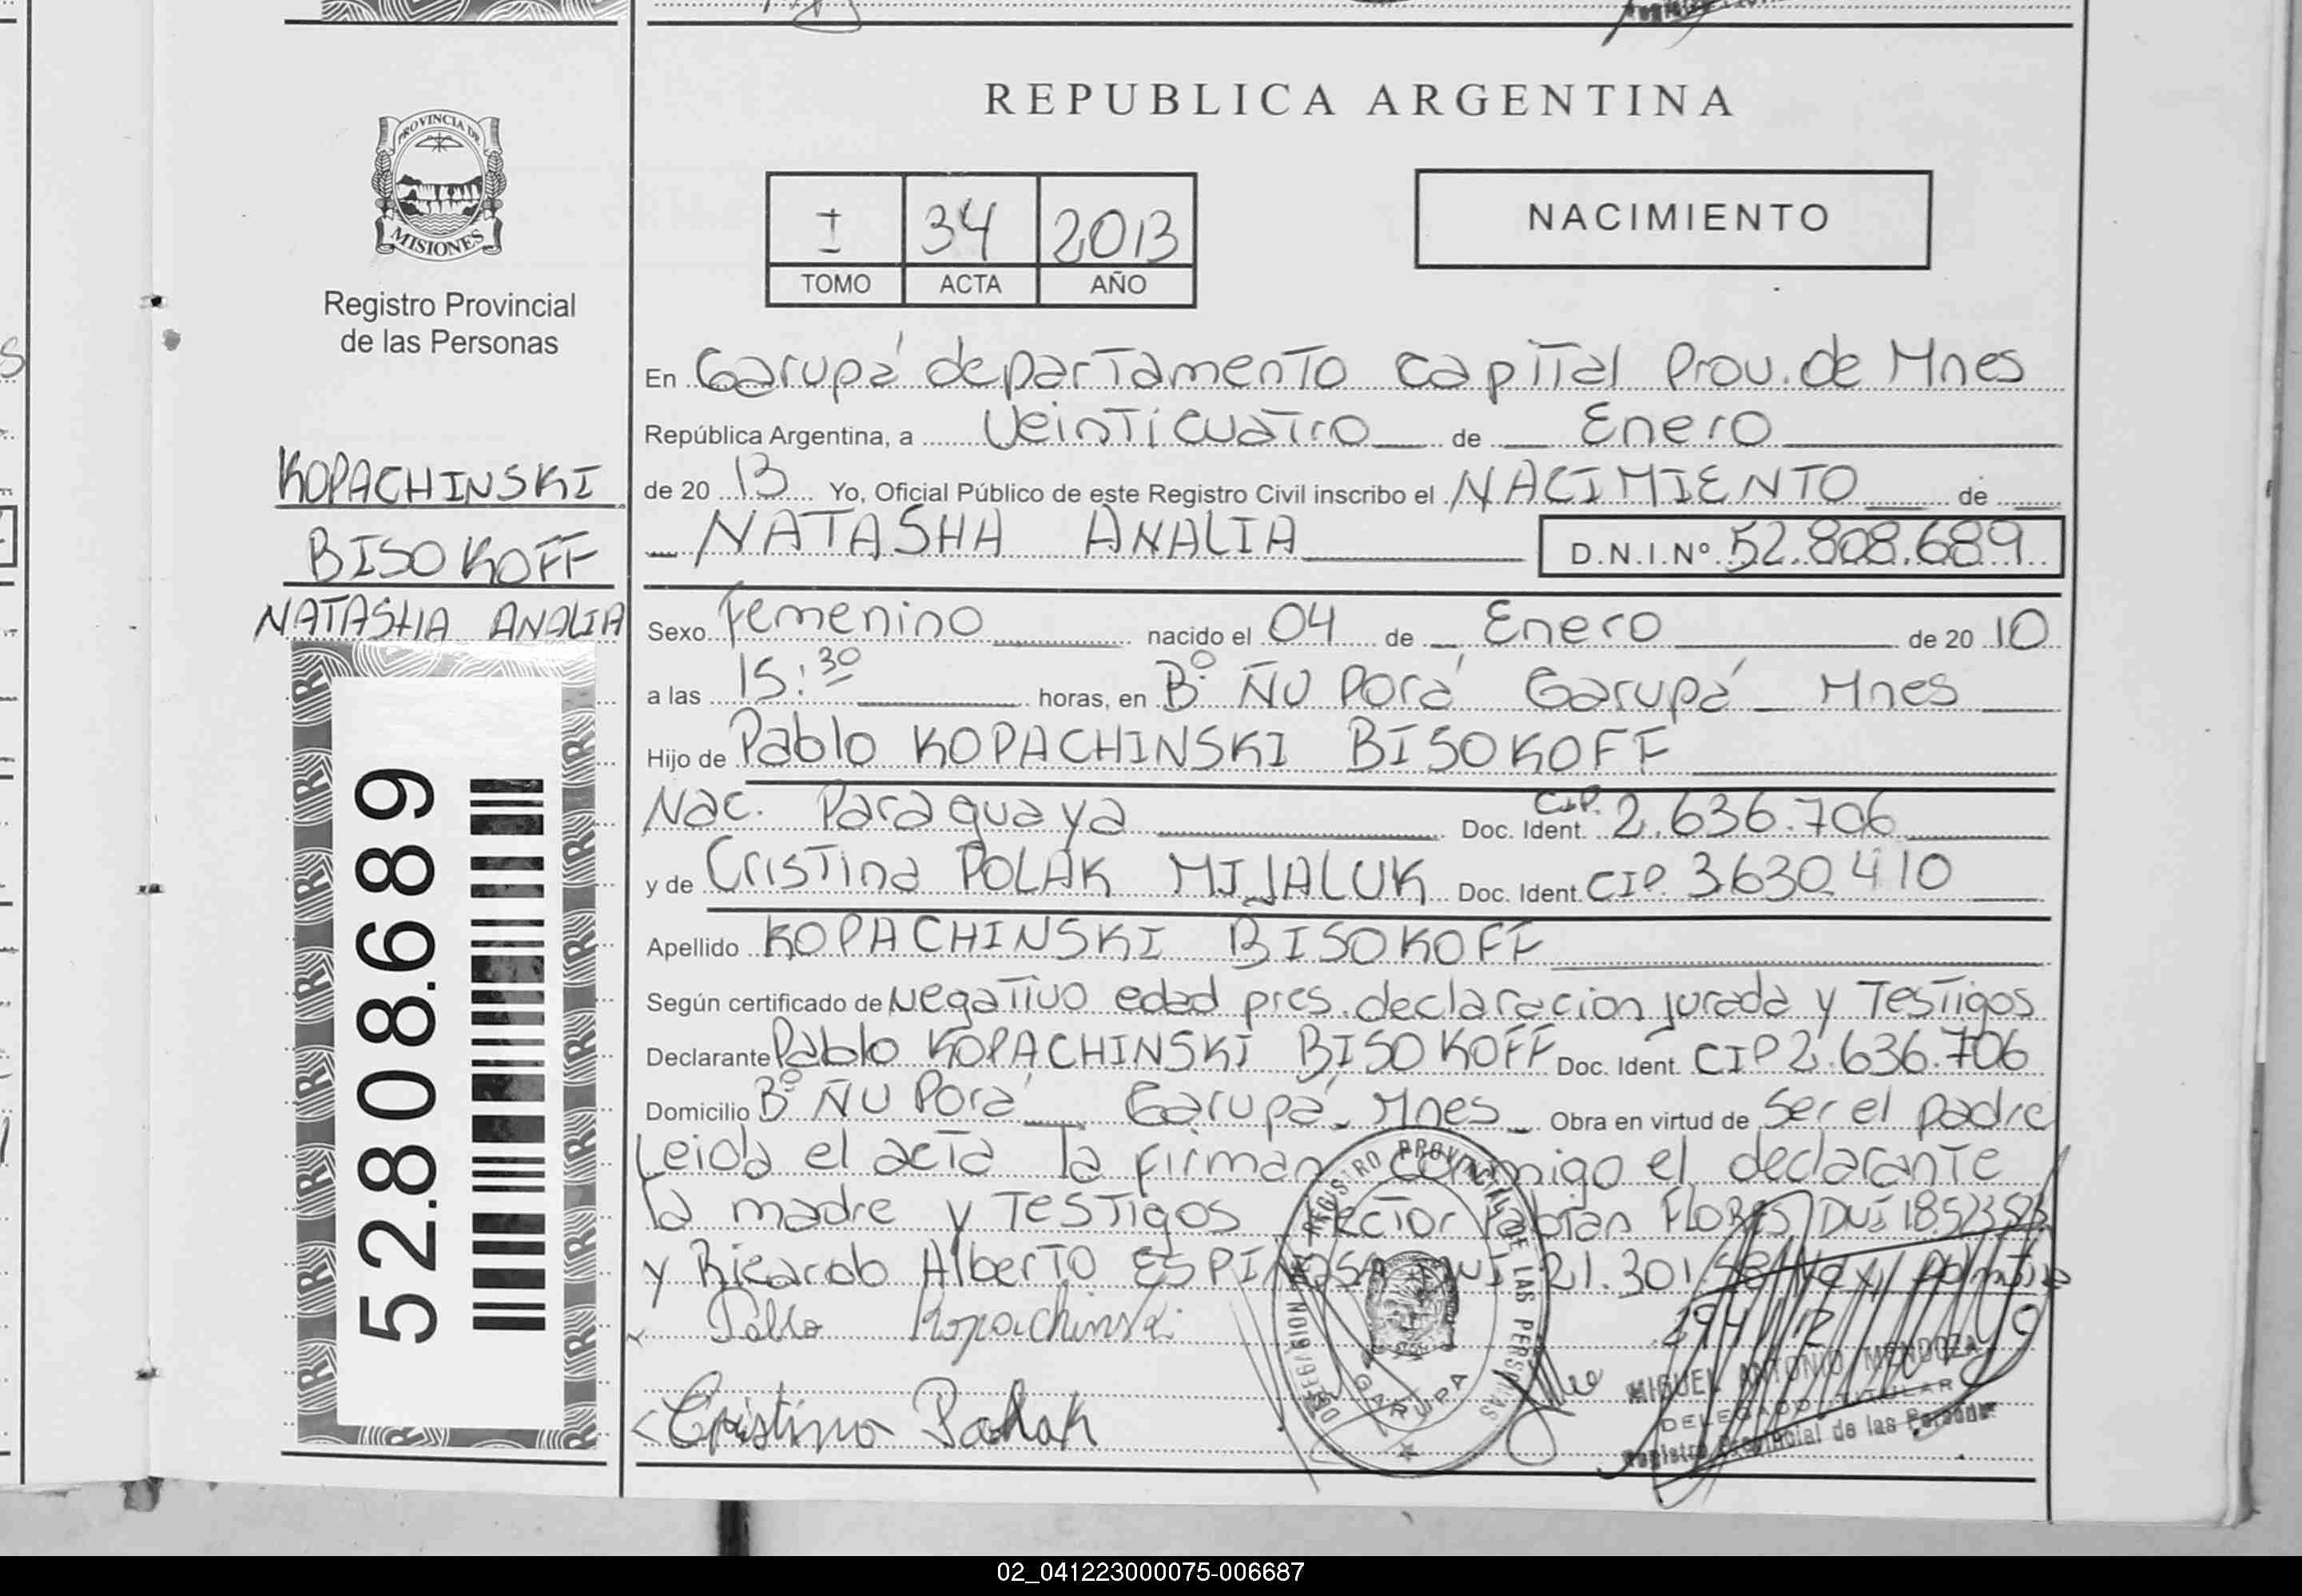 REPUBLICA ARGENTINA
PROVINCIA DE
MISIONES
Registro Provincial
de las Personas
I 34 2013
TOMO ACTA AÑO
NACIMIENTO
KOPACHINSKI
BISOKOFF
NATASHA ANALIA
52.808.689
En Garupá departamento capital Prov. de Mnes
República Argentina, a Veinticuatro de Enero
de 20 13 Yo, Oficial Público de este Registro Civil inscribo el NACIMIENTO de
NATASHA ANALIA D.N.I.Nº 52.808.689
Sexo Femenino nacido el 04 de Enero de 20 10
a las 15:30 horas, en Bº ÑU Porá Garupá Mnes
Hijo de Pablo KOPACHINSKI BISOKOFF
Nac. Paraguaya Doc. Ident. CIP. 2.636.706
y de Cristina POLAK MIJALUK Doc. Ident. CIP. 3.630.410
Apellido KOPACHINSKI BISOKOFF
Según certificado de Negativo edad pres. declaracion jurada y Testigos
Declarante Pablo KOPACHINSKI BISOKOFF Doc. Ident. CIP 2.636.706
Domicilio Bº ÑU Porá Garupá - Mnes Obra en virtud de Ser el padre
Leida el acta la firman conmigo el declarante
la madre y Testigos Hector Fabian FLORES DNI
y Ricardo Alberto ESPINOSA DNI 21.301
Pablo Kopachinski
Cristina Polak
DELEGACION DEL REGISTRO PROVINCIAL DE LAS PERSONAS
GARUPA
MIGUEL ANTONIO MENDOZA
DELEGADO TITULAR
Registro Provincial de las Personas
02_041223000075-006687